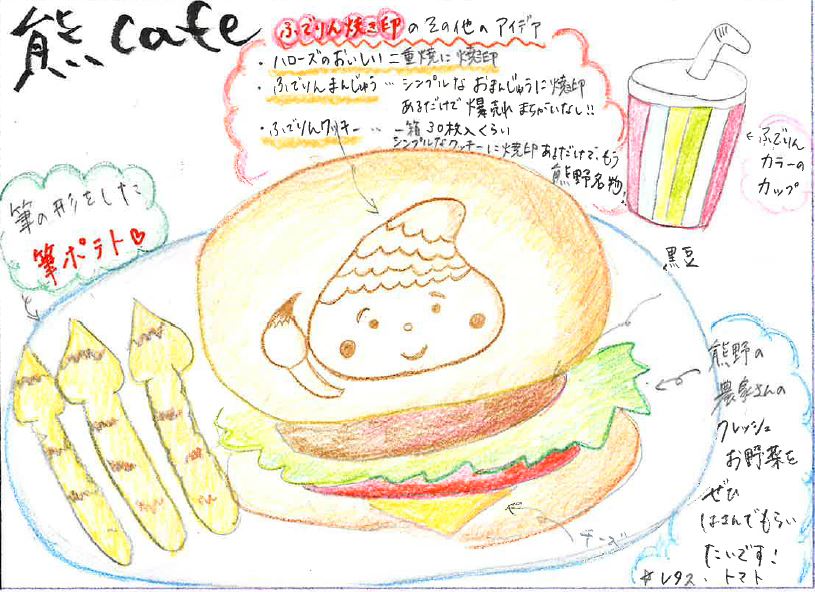 熊cafe
ふでりん焼き印のその他のアイデア
・ハローズのおいしい二重焼に焼き印
・ふでりんまんじゅう…シンプルなおまんじゅうに焼き印
あるだけで爆売れまちがいなし!!
・ふでりんクッキー…一箱30枚入くらい
シンプルなクッキーに焼印あるだけで、もう
熊野名物!!
ふでりん
カラーの
カップ
筆の形をした
筆ポテト♡
黒豆
熊野の
農家さんの
フレッシュ
お野菜を
ぜひ
はさんでもらい
たいです!
レタス・トマト
チーズ